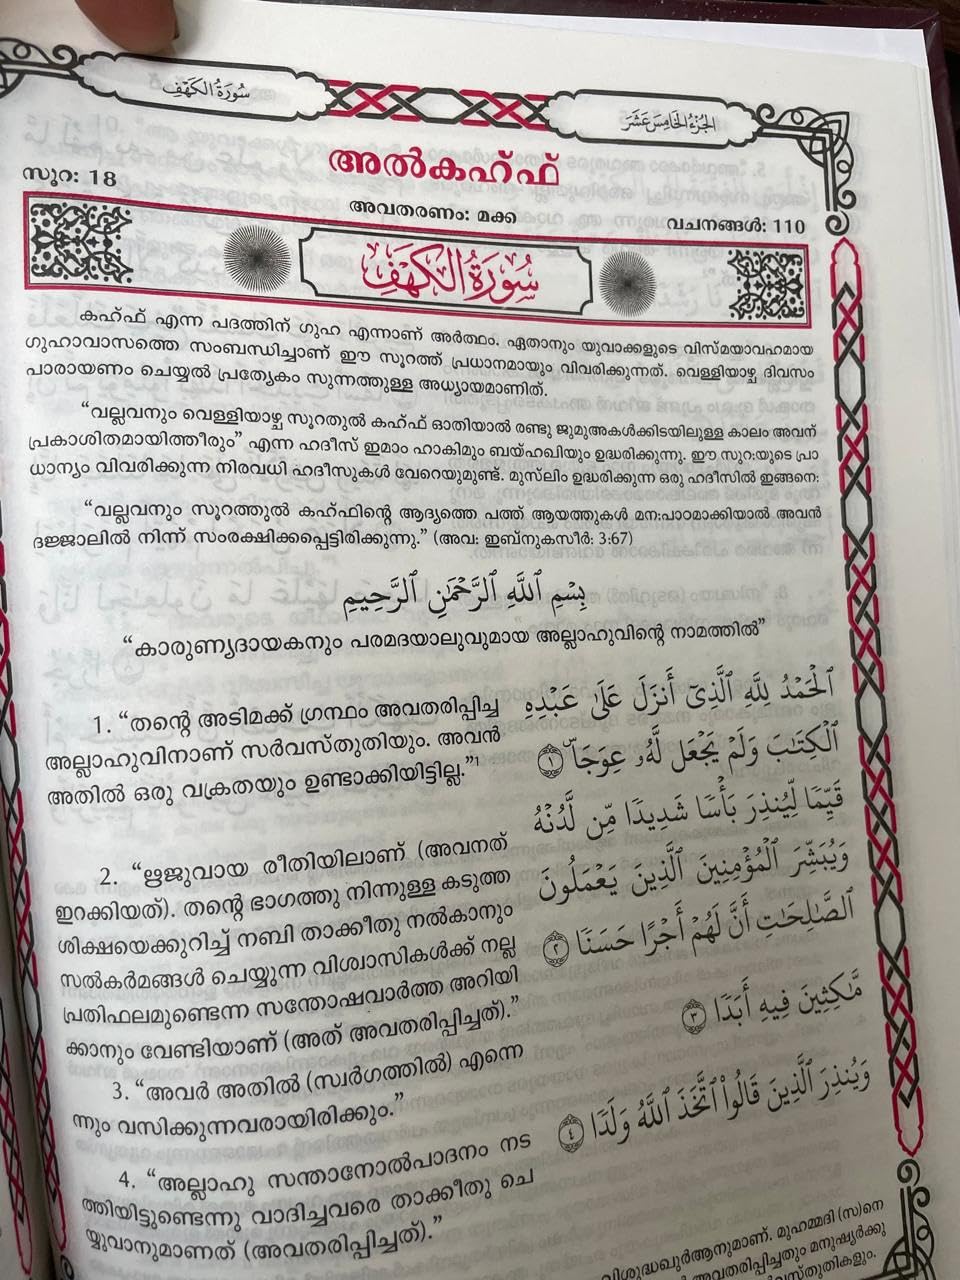 سُورَةُ الكَهْفِ
الجُزْءُ الخَامِسَ عَشَرَ
അൽകഹ്ഫ്
സൂറ: 18
അവതരണം: മക്ക
വചനങ്ങൾ: 110
سُورَةُ الكَهْفِ
കഹ്ഫ് എന്ന പദത്തിന് ഗുഹ എന്നാണ് അർത്ഥം. ഏതാനും യുവാക്കളുടെ വിസ്മയാവഹമായ
ഗുഹാവാസത്തെ സംബന്ധിച്ചാണ് ഈ സൂറത്ത് പ്രധാനമായും വിവരിക്കുന്നത്. വെള്ളിയാഴ്ച ദിവസം
പാരായണം ചെയ്യൽ പ്രത്യേകം സുന്നത്തുള്ള അധ്യായമാണിത്.
“വല്ലവനും വെള്ളിയാഴ്ച സൂറതുൽ കഹ്ഫ് ഓതിയാൽ രണ്ടു ജുമുഅകൾക്കിടയിലുള്ള കാലം അവന്
പ്രകാശിതമായിത്തീരും” എന്ന ഹദീസ് ഇമാം ഹാകിമും ബയ്ഹഖിയും ഉദ്ധരിക്കുന്നു. ഈ സൂറ:യുടെ പ്രാ
ധാന്യം വിവരിക്കുന്ന നിരവധി ഹദീസുകൾ വേറെയുമുണ്ട്. മുസ്‌ലിം ഉദ്ധരിക്കുന്ന ഒരു ഹദീസിൽ ഇങ്ങനെ:
“വല്ലവനും സൂറത്തുൽ കഹ്ഫിന്റെ ആദ്യത്തെ പത്ത് ആയത്തുകൾ മന:പാഠമാക്കിയാൽ അവൻ
ദജ്ജാലിൽ നിന്ന് സംരക്ഷിക്കപ്പെട്ടിരിക്കുന്നു.” (അവ: ഇബ്നുകസീർ: 3:67)
بِسْمِ ٱللَّهِ ٱلرَّحْمَٰنِ ٱلرَّحِيمِ
“കാരുണ്യദായകനും പരമദയാലുവുമായ അല്ലാഹുവിന്റെ നാമത്തിൽ”
ٱلْحَمْدُ لِلَّهِ ٱلَّذِىٓ أَنزَلَ عَلَىٰ عَبْدِهِ
ٱلْكِتَابَ وَلَمْ يَجْعَل لَّهُۥ عِوَجَاۜ ١
قَيِّمًا لِّيُنذِرَ بَأْسًا شَدِيدًا مِّن لَّدُنْهُ
وَيُبَشِّرَ ٱلْمُؤْمِنِينَ ٱلَّذِينَ يَعْمَلُونَ
ٱلصَّـٰلِحَـٰتِ أَنَّ لَهُمْ أَجْرًا حَسَنًا ٢
مَّـٰكِثِينَ فِيهِ أَبَدًا ٣
وَيُنذِرَ ٱلَّذِينَ قَالُوا۟ ٱتَّخَذَ ٱللَّهُ وَلَدًا ٤
1. “തന്റെ അടിമക്ക് ഗ്രന്ഥം അവതരിപ്പിച്ച
അല്ലാഹുവിനാണ് സർവസ്തുതിയും. അവൻ
അതിൽ ഒരു വക്രതയും ഉണ്ടാക്കിയിട്ടില്ല.”¹
2. “ഋജുവായ രീതിയിലാണ് (അവനത്
ഇറക്കിയത്). തന്റെ ഭാഗത്തു നിന്നുള്ള കടുത്ത
ശിക്ഷയെക്കുറിച്ച് നബി താക്കീതു നൽകാനും
സൽകർമങ്ങൾ ചെയ്യുന്ന വിശ്വാസികൾക്ക് നല്ല
പ്രതിഫലമുണ്ടെന്ന സന്തോഷവാർത്ത അറിയി
ക്കാനും വേണ്ടിയാണ് (അത് അവതരിപ്പിച്ചത്).”
3. “അവർ അതിൽ (സ്വർഗത്തിൽ) എന്നെ
ന്നും വസിക്കുന്നവരായിരിക്കും.”
4. “അല്ലാഹു സന്താനോൽപാദനം നട
ത്തിയിട്ടുണ്ടെന്നു വാദിച്ചവരെ താക്കീതു ചെ
യ്യുവാനുമാണത് (അവതരിപ്പിച്ചത്).”
വിശുദ്ധഖുർആനുമാണ്. മുഹമ്മദി (സ)നെ
അവതരിപ്പിച്ചതും മനുഷ്യർക്കു